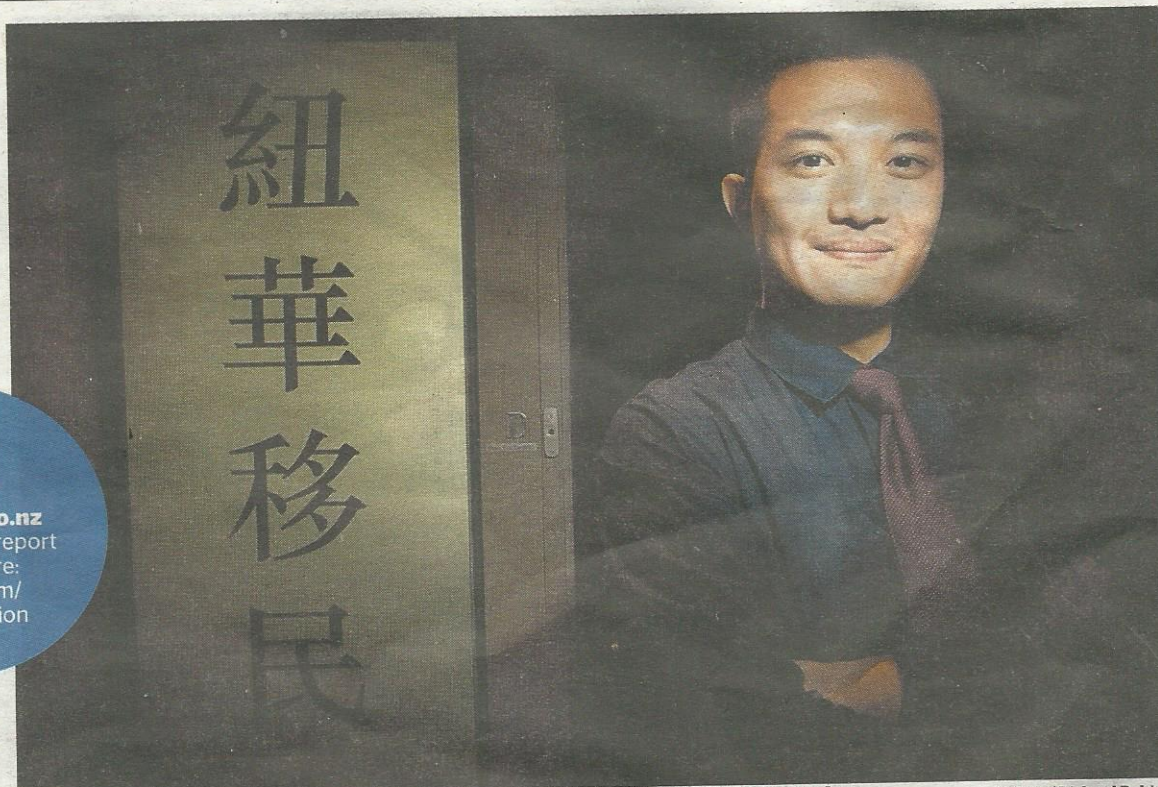 紐
華
移
民
o.nz
report
re:
m/
ion